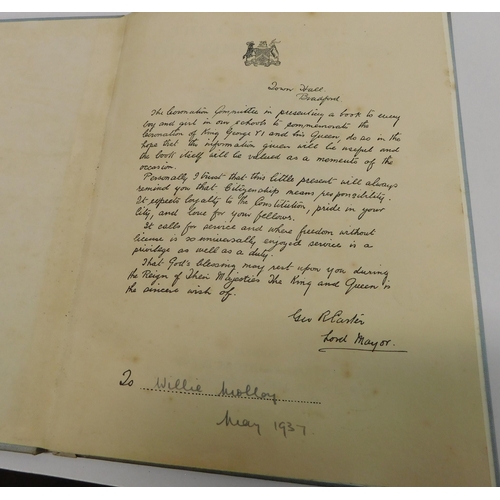 Town Hall,
Bradford
The Coronation Committee in presenting a book to every
boy and girl in our schools to commemorate the
Coronation of King George VI and his Queen, do so in the
hope that the information given will be useful and
the book itself will be valued as a momento of the
occasion.
Personally I trust that this little present will always
remind you that Citizenship means responsibility.
It expects loyalty to the Constitution, pride in your
City, and love for your fellows.
It calls for service and where freedom without
license is so universally enjoyed service is a
privilege as well as a duty.
That God's blessing may rest upon you during
the Reign of Their Majesties The King and Queen is
the sincere wish of.
Geo R Carter
Lord Mayor.
To Willie Molloy
May 1937